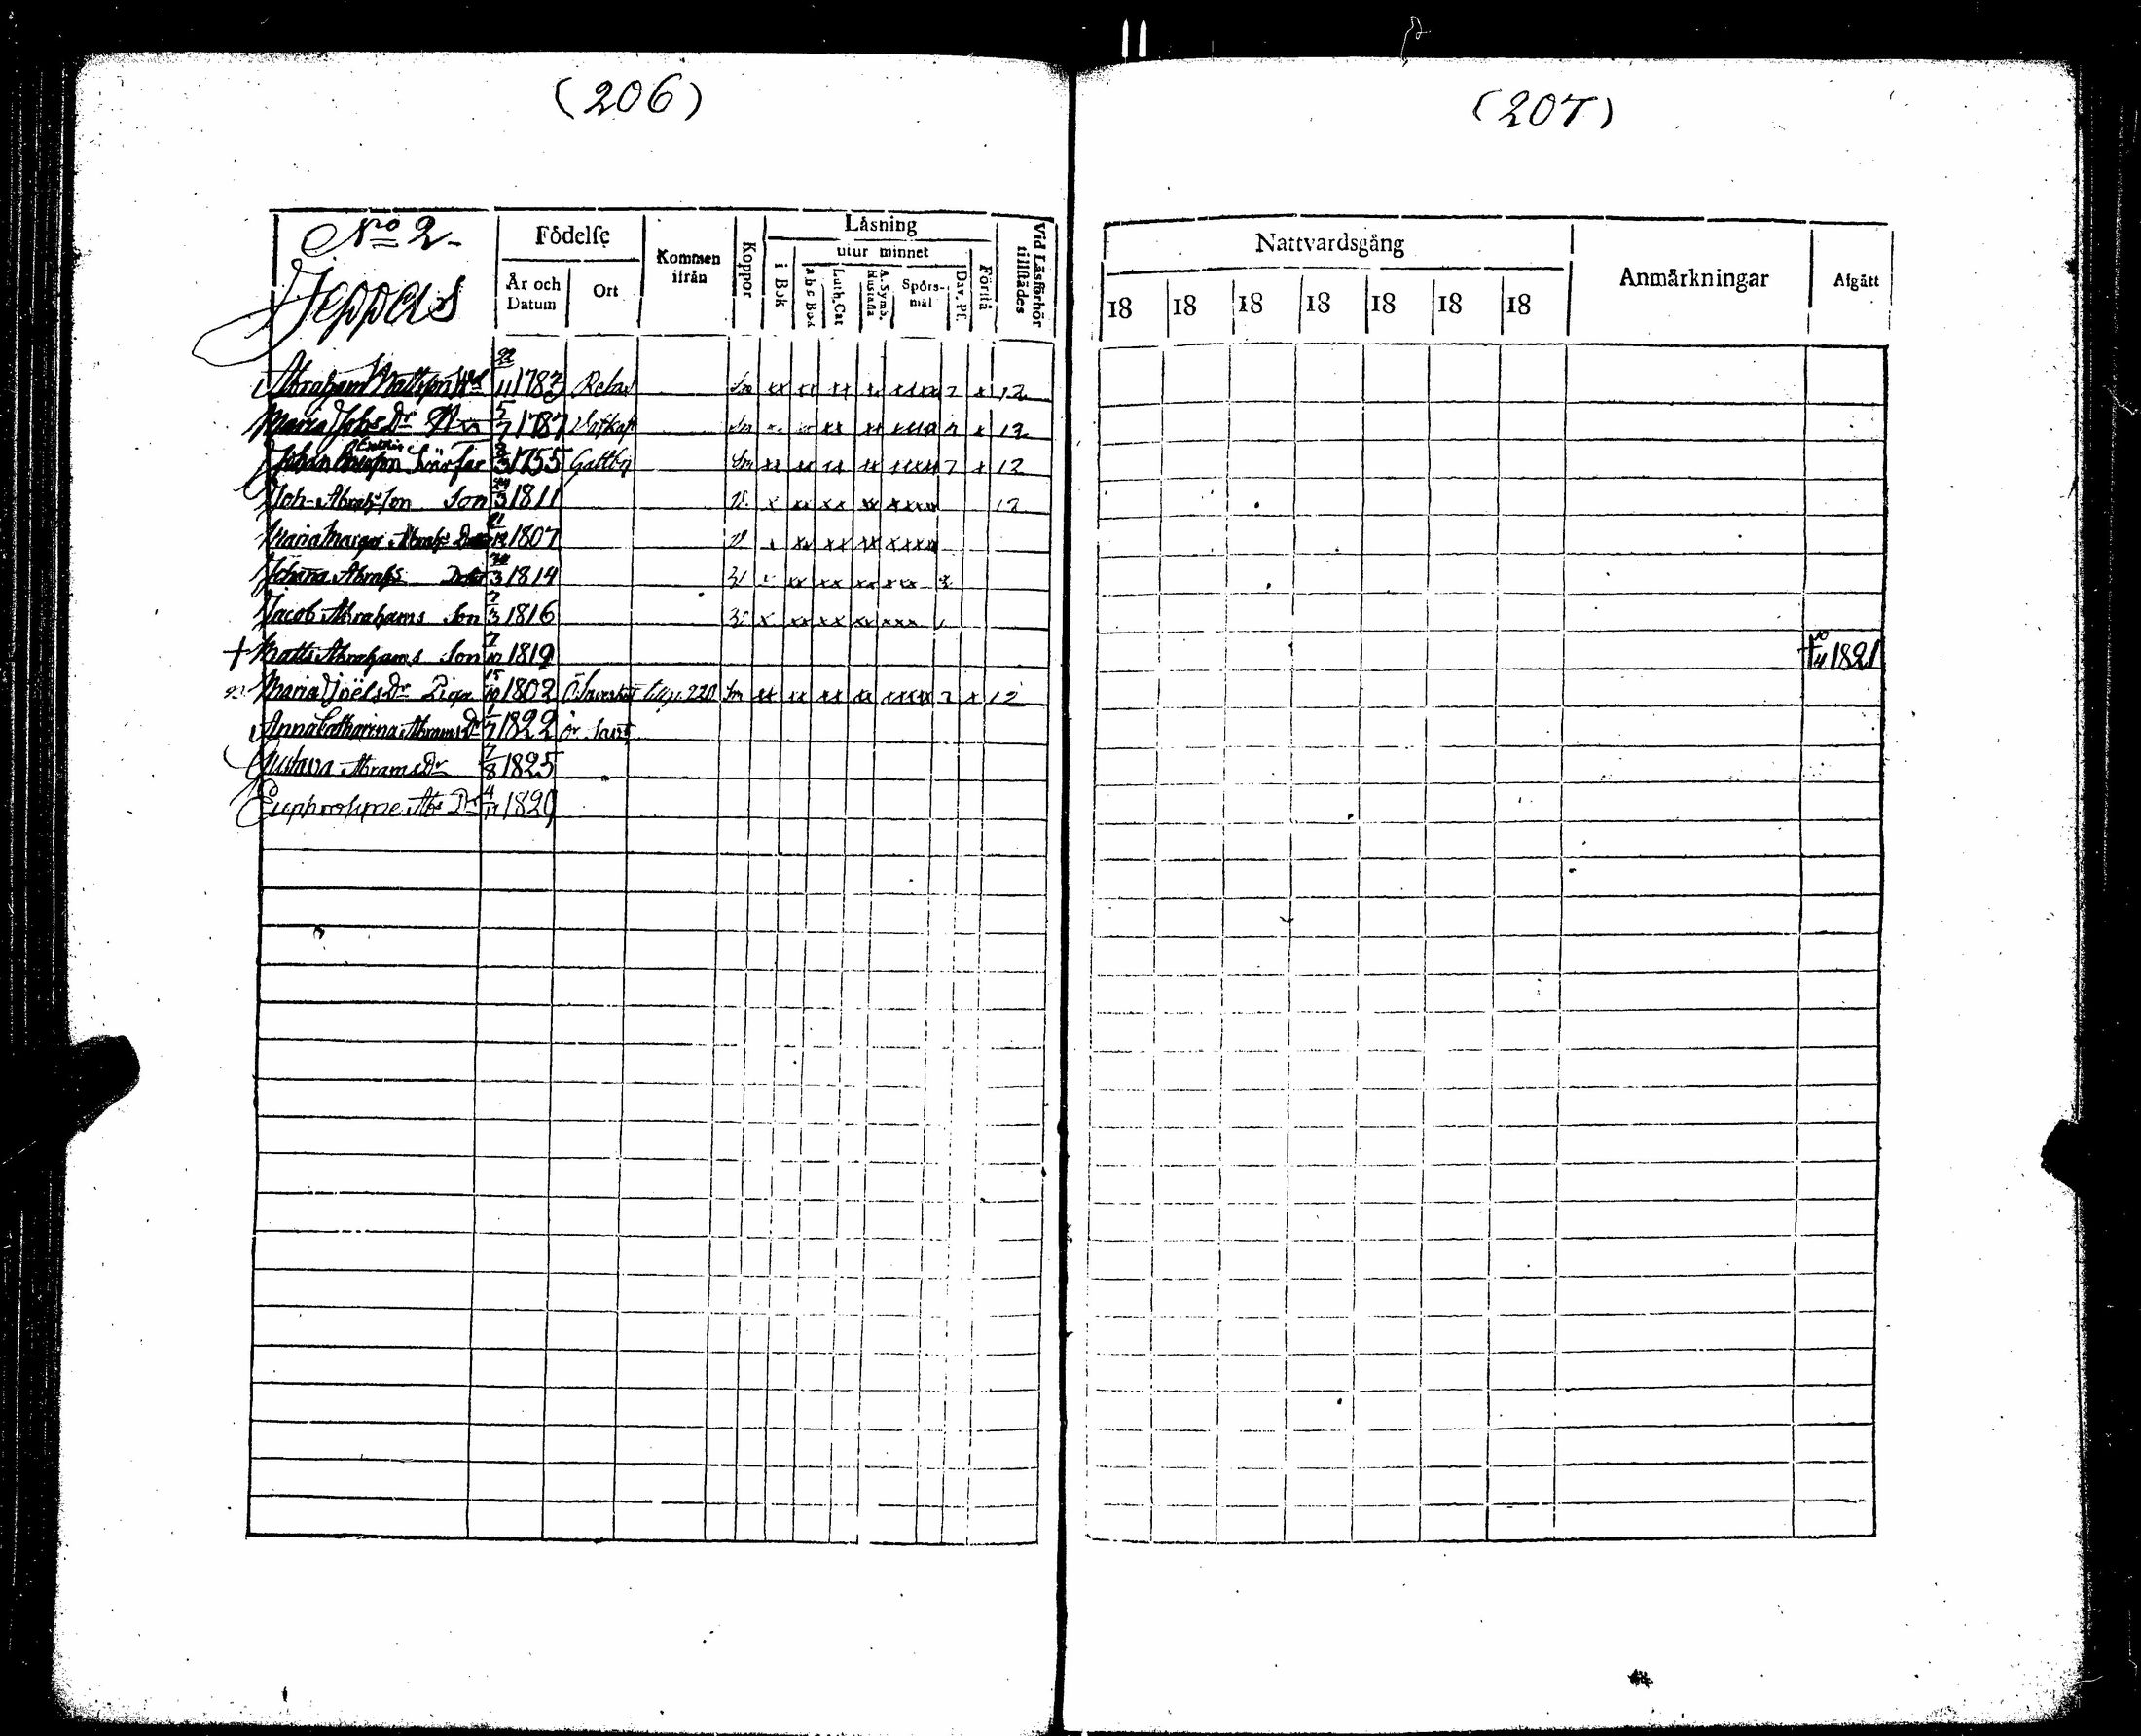 (206)
No 2.
Jeppers
Födelse
År och Datum
Ort
Kommen ifrån
Koppor
Läsning
i Bok
utur minnet
a b c Bok
Luth. Cat
A. Symb. Hustafla
Spörs-mål
Dav. Ps.
Förstå
Vid Läsförhör tillstädes
Abraham Mattsson 22/11 1783 xx xx xx xx xxxx 7 x 12
Maria Johs Dr 5/7 1787 xx xx xxxx x 12
Johan Svärfar 3 1755 xx xx xx xx xxxx 7 x 12
Joh. Abrahs Son Son 24/3 1811 x xx xx xx xxxx 12
Maria Abrahs 21/12 1807 x xx xx xx xxxx
Johana Abrahs Dotter 3 1814 xx xx xx xxx
Jacob Abrahams Son 7/3 1816 x xx xx xx xxx
† Matts Abrahams Son 7 1819
Maria Joëls Dr Piga 15/10 1802 220 xx xx xx xx xxxx 7 x 12
Anna Catharina Abrams Dr 1/7 1822
Gustava Abrams Dr 7/8 1825
Euphrosyne Abs Dr 4/11 1829
(207)
Nattvardsgång
18 18 18 18 18 18 18
Anmärkningar
Afgått
† 10/4 1821